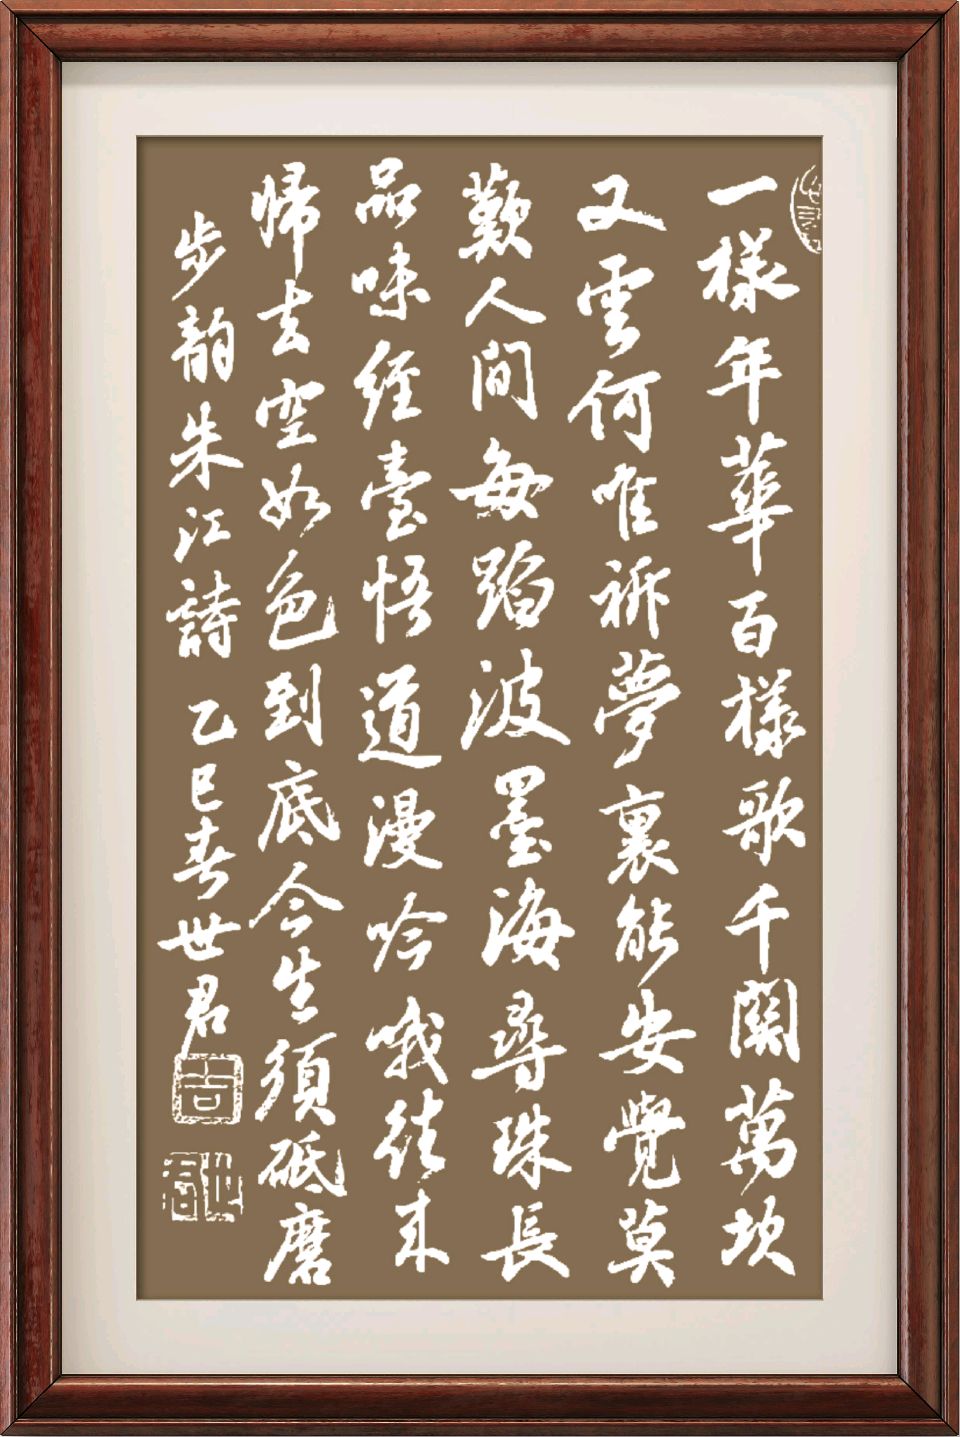 一樣年華百樣歌千關萬坎
又雲何唯祈夢裏能安覺莫
歎人間每蹈波墨海尋珠長
品味經臺悟道漫吟哦從來
歸去空如色到底今生須砥磨
步韵朱江詩 乙巳春世君
吉
世君